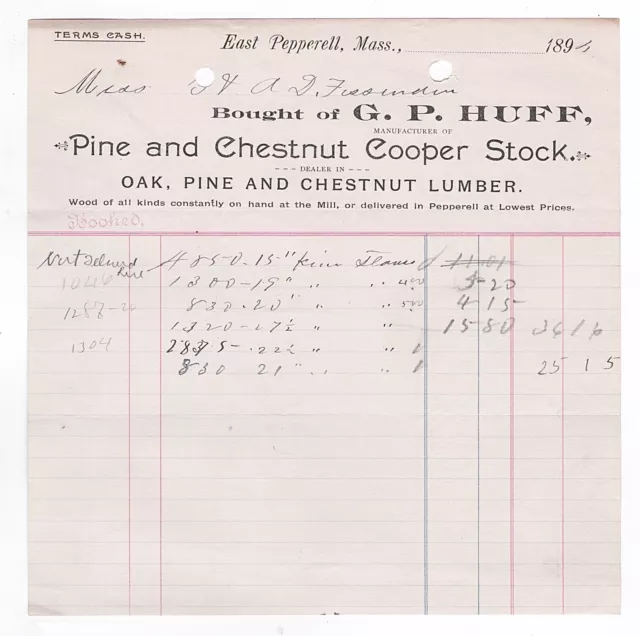 TERMS CASH.
East Pepperell, Mass., 189
A D. Fessenden
Bought of G. P. HUFF,
MANUFACTURER OF
Pine and Chestnut Cooper Stock.
DEALER IN
OAK, PINE AND CHESTNUT LUMBER.
Wood of all kinds constantly on hand at the Mill, or delivered in Pepperell at Lowest Prices.
Booked.
4850-15" 11.01
1046 1300-19" " " 4.00 5-20
1287-26 830-20" " " 5.00 4 15
1320-27½ " " 15 80 36 16
1304 2835-22½ " "
830 21" " " 25 15